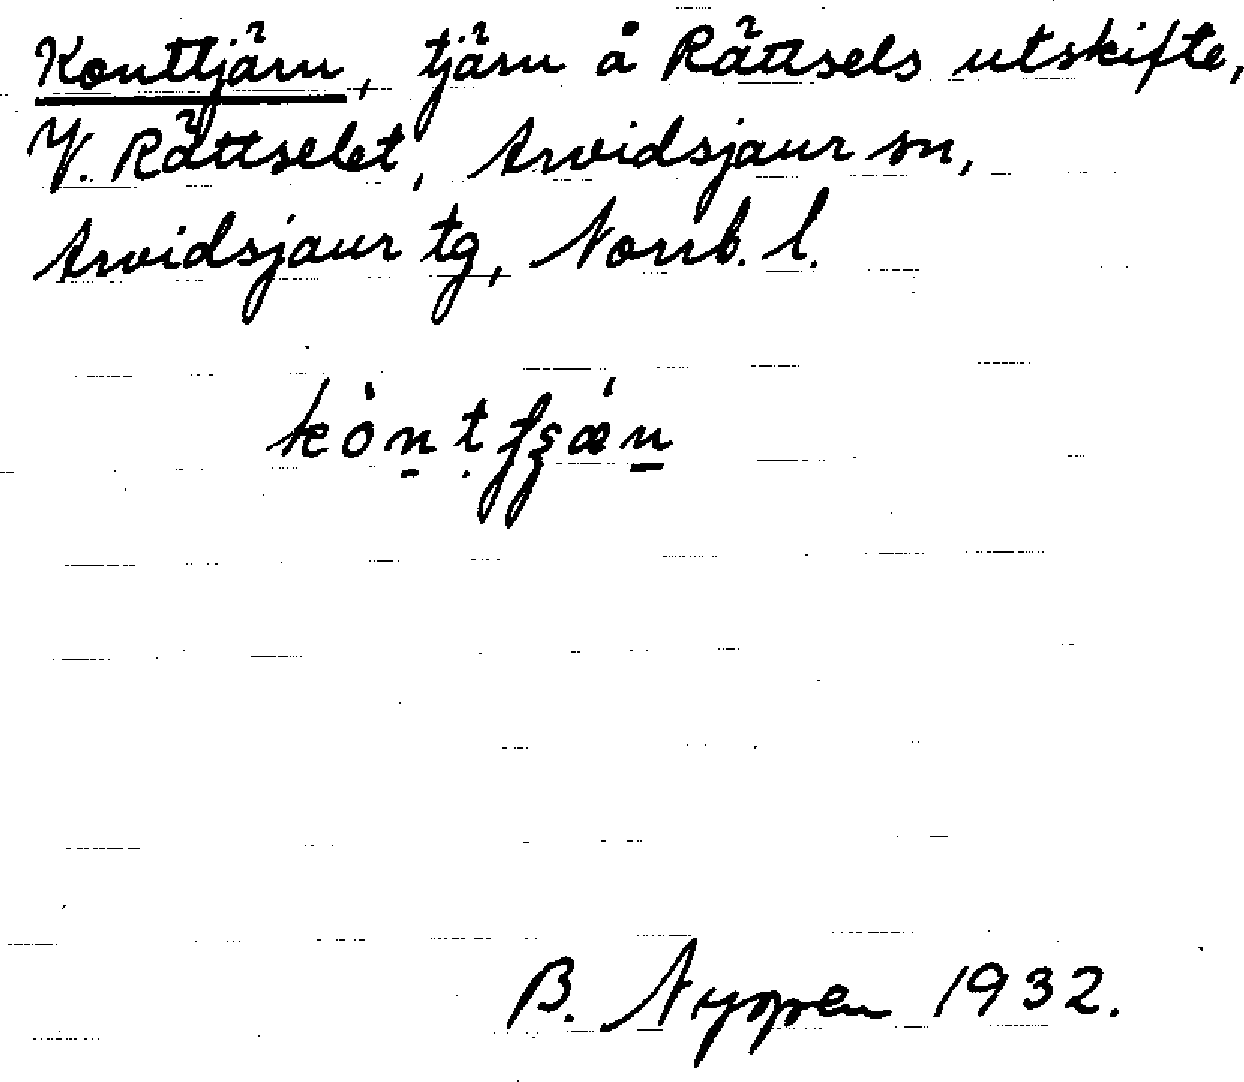 Konttjärn, tjärn å Rättsels utskifte,
V. Rättselet, Arvidsjaur sn,
Arvidsjaur tg, Norrb. l.
B. Nyppen 1932.